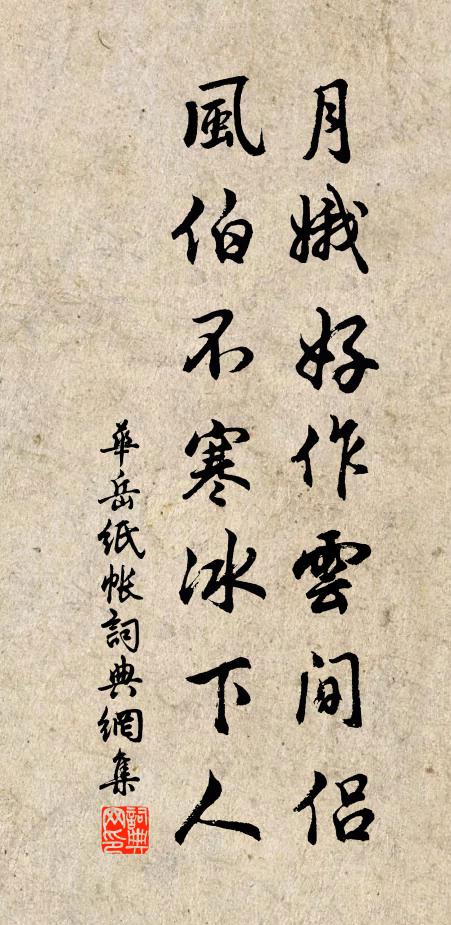 月娥好作雲間侣
風伯不寒冰下人
華岳紙帐詞典網集
詞典网印